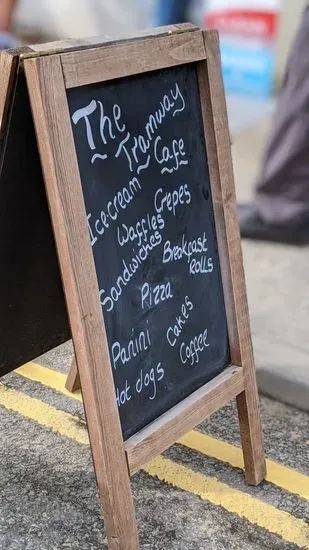 The
Tramway
Cafe
Ice-cream
Crepes
Waffles
Sandwichs
Breakfast
Rolls
Pizza
Panini
Cakes
Hot dogs
Coffee